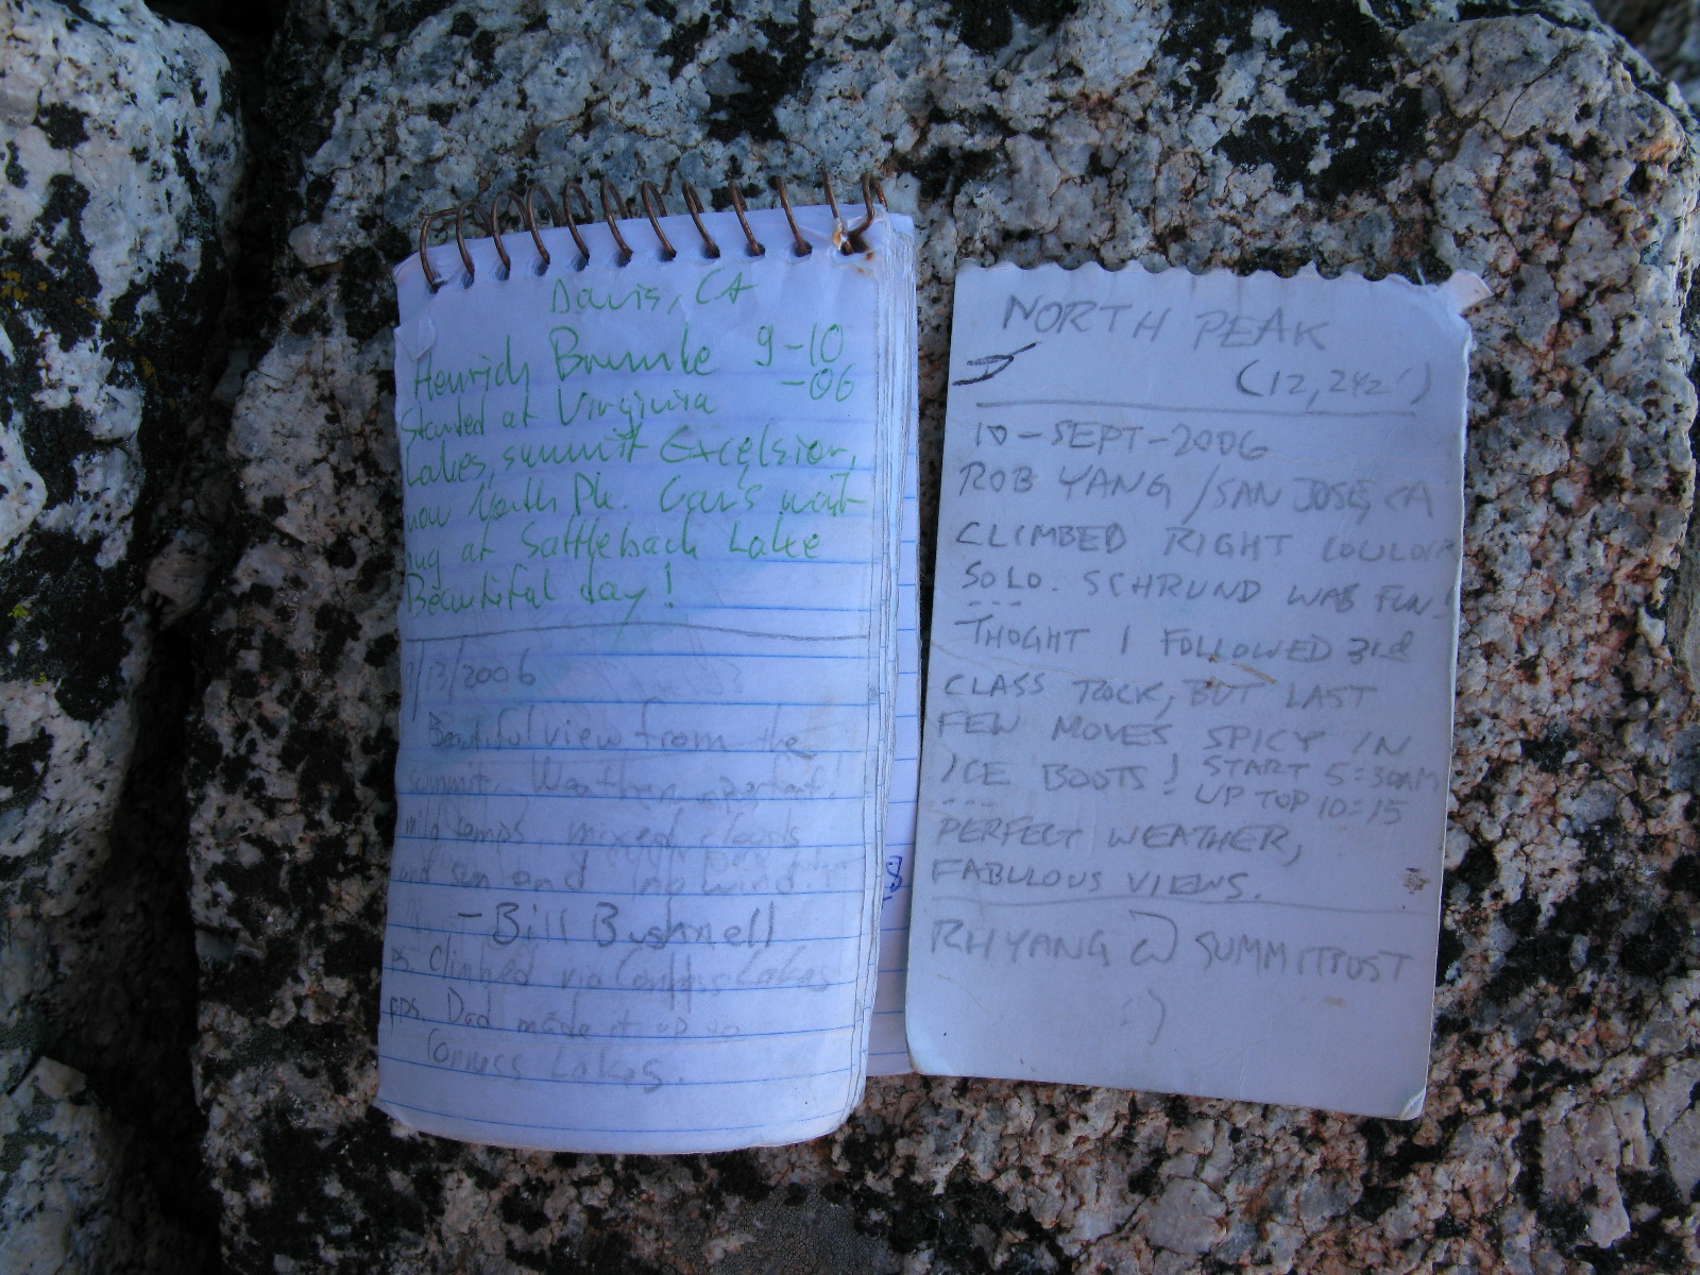 Davis, CA
Henrich 9-10
-06
Started at Virginia
Lakes, summit Excelsior,
now North Pk. Car's wait-
ing at Sattleback Lake
Beautiful day!
9/13/2006
Beautiful view from the
summit. Weather
mild temps mixed clouds
and sun and no wind.
- Bill Bushnell
ps. Climbed via Conness Lakes
pps. Dad made it up to
Conness Lakes.
8
NORTH PEAK
(12,242')
10-SEPT-2006
ROB YANG / SAN JOSE, CA
CLIMBED RIGHT COULOIR
SOLO. SCHRUND WAS FUN!
THOGHT I FOLLOWED 3rd
CLASS ROCK, BUT LAST
FEW MOVES SPICY IN
ICE BOOTS! START 5:30AM
UP TOP 10:15
PERFECT WEATHER,
FABULOUS VIEWS.
RHYANG @ SUMMITPOST
:)